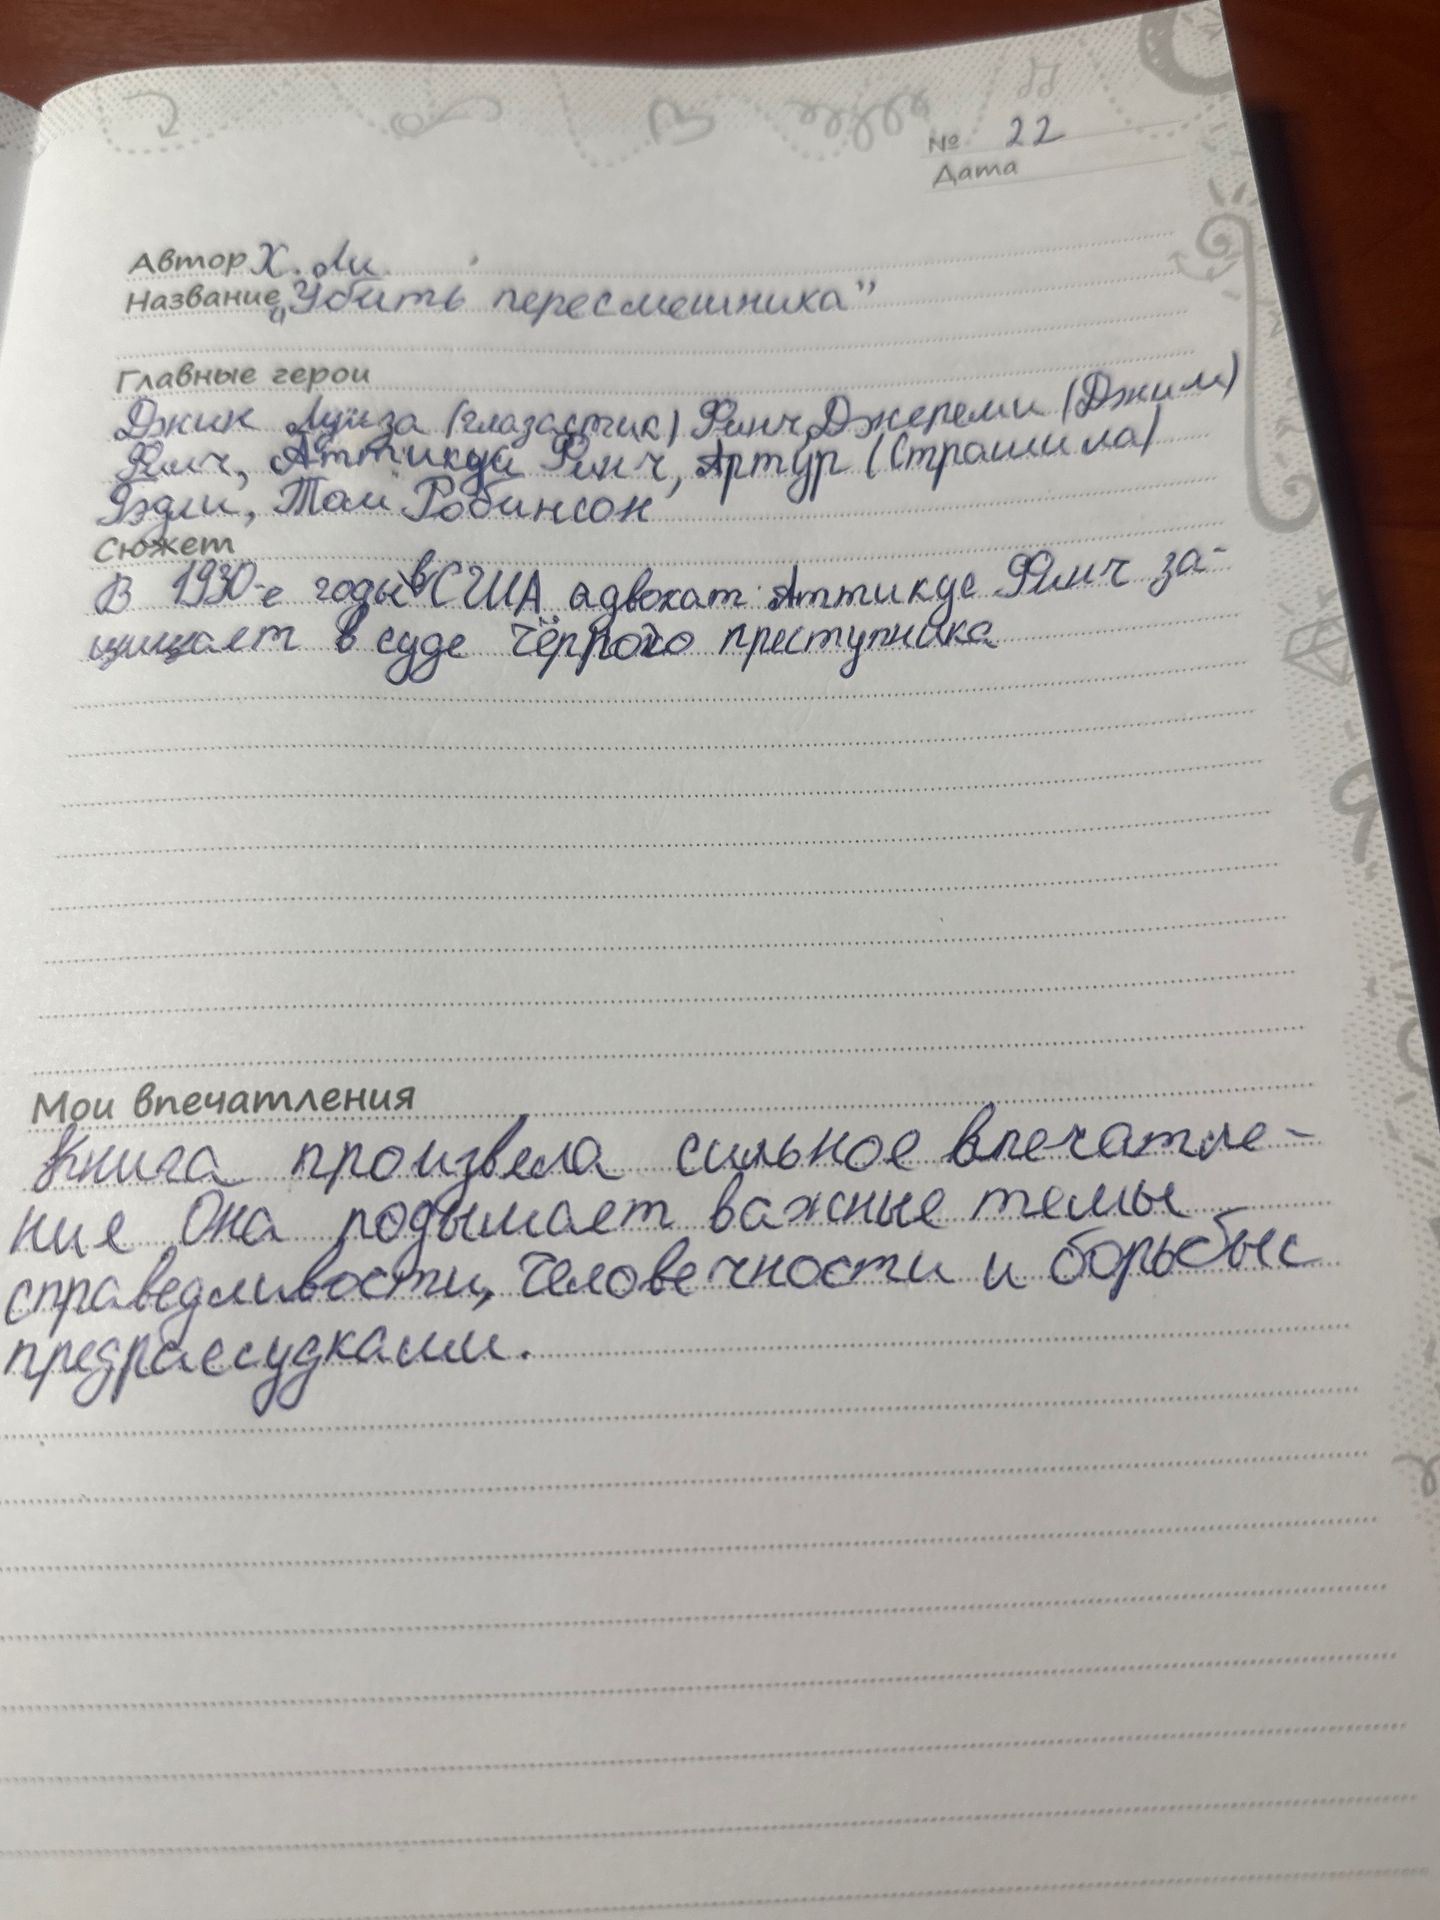 № 22
Дата
Автор Х. Ли
Название „Убить пересмешника”
Главные герои
Джин Луиза (глазастик) Финч, Джереми (Джим)
Финч, Аттикус Финч, Артур (Страшила)
Рэдли, Том Робинсон
Сюжет
В 1930-е годы в США адвокат Аттикус Финч за-
щищает в суде чёрного преступника
Мои впечатления
Книга произвела сильное впечатле-
ние. Она подымает важные темы
справедливости, человечности и борьбы с
предрассудками.